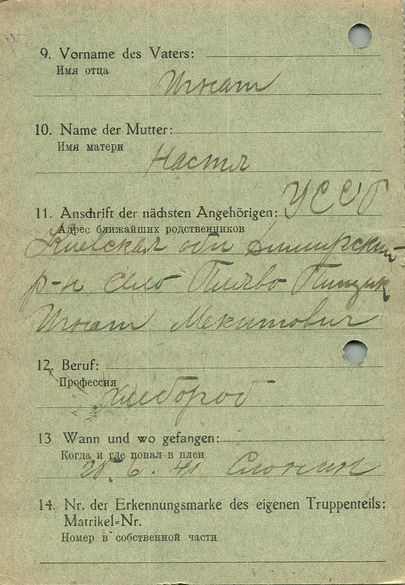 9. Vorname des Vaters:
Имя отца
Игнат
10. Name der Mutter:
Имя матери
Настя
11. Anschrift der nächsten Angehörigen: УССР
Адрес ближайших родственников
Киевская обл
р-н село Пищик
Игнат Мекитович
12. Beruf:
Профессия
хлебороб
13 Wann und wo gefangen:
Когда и где попал в плен
6. 41 Слоним
14. Nr. der Erkennungsmarke des eigenen Truppenteils:
Matrikel-Nr.
Номер в собственной части